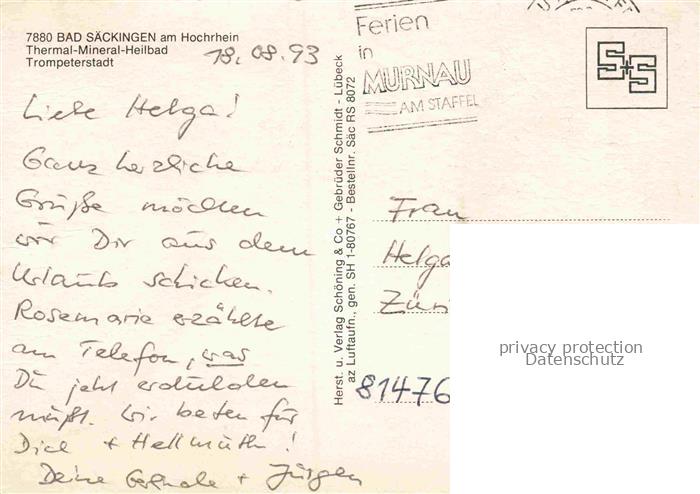 7880 BAD SÄCKINGEN am Hochrhein
Thermal-Mineral-Heilbad
Trompeterstadt
18.08.93
Liebe Helga!
Ganz herzliche
Grüße möchten
wir Dir aus dem
Urlaub schicken.
Rosemarie erzählte
am Telefon, was
Du jetzt erdulden
mußt. Wir beten für
Dich + Hellmuth!
Deine + Jürgen
Herst. u. Verlag Schöning & Co + Gebrüder Schmidt - Lübeck
az Luftaufn., gen. SH 1-80767 - Bestellnr. Säc RS 8072
Ferien
in
MURNAU
AM STAFFEL
S+S
Frau
Helga
Züri
81476
privacy protection
Datenschutz